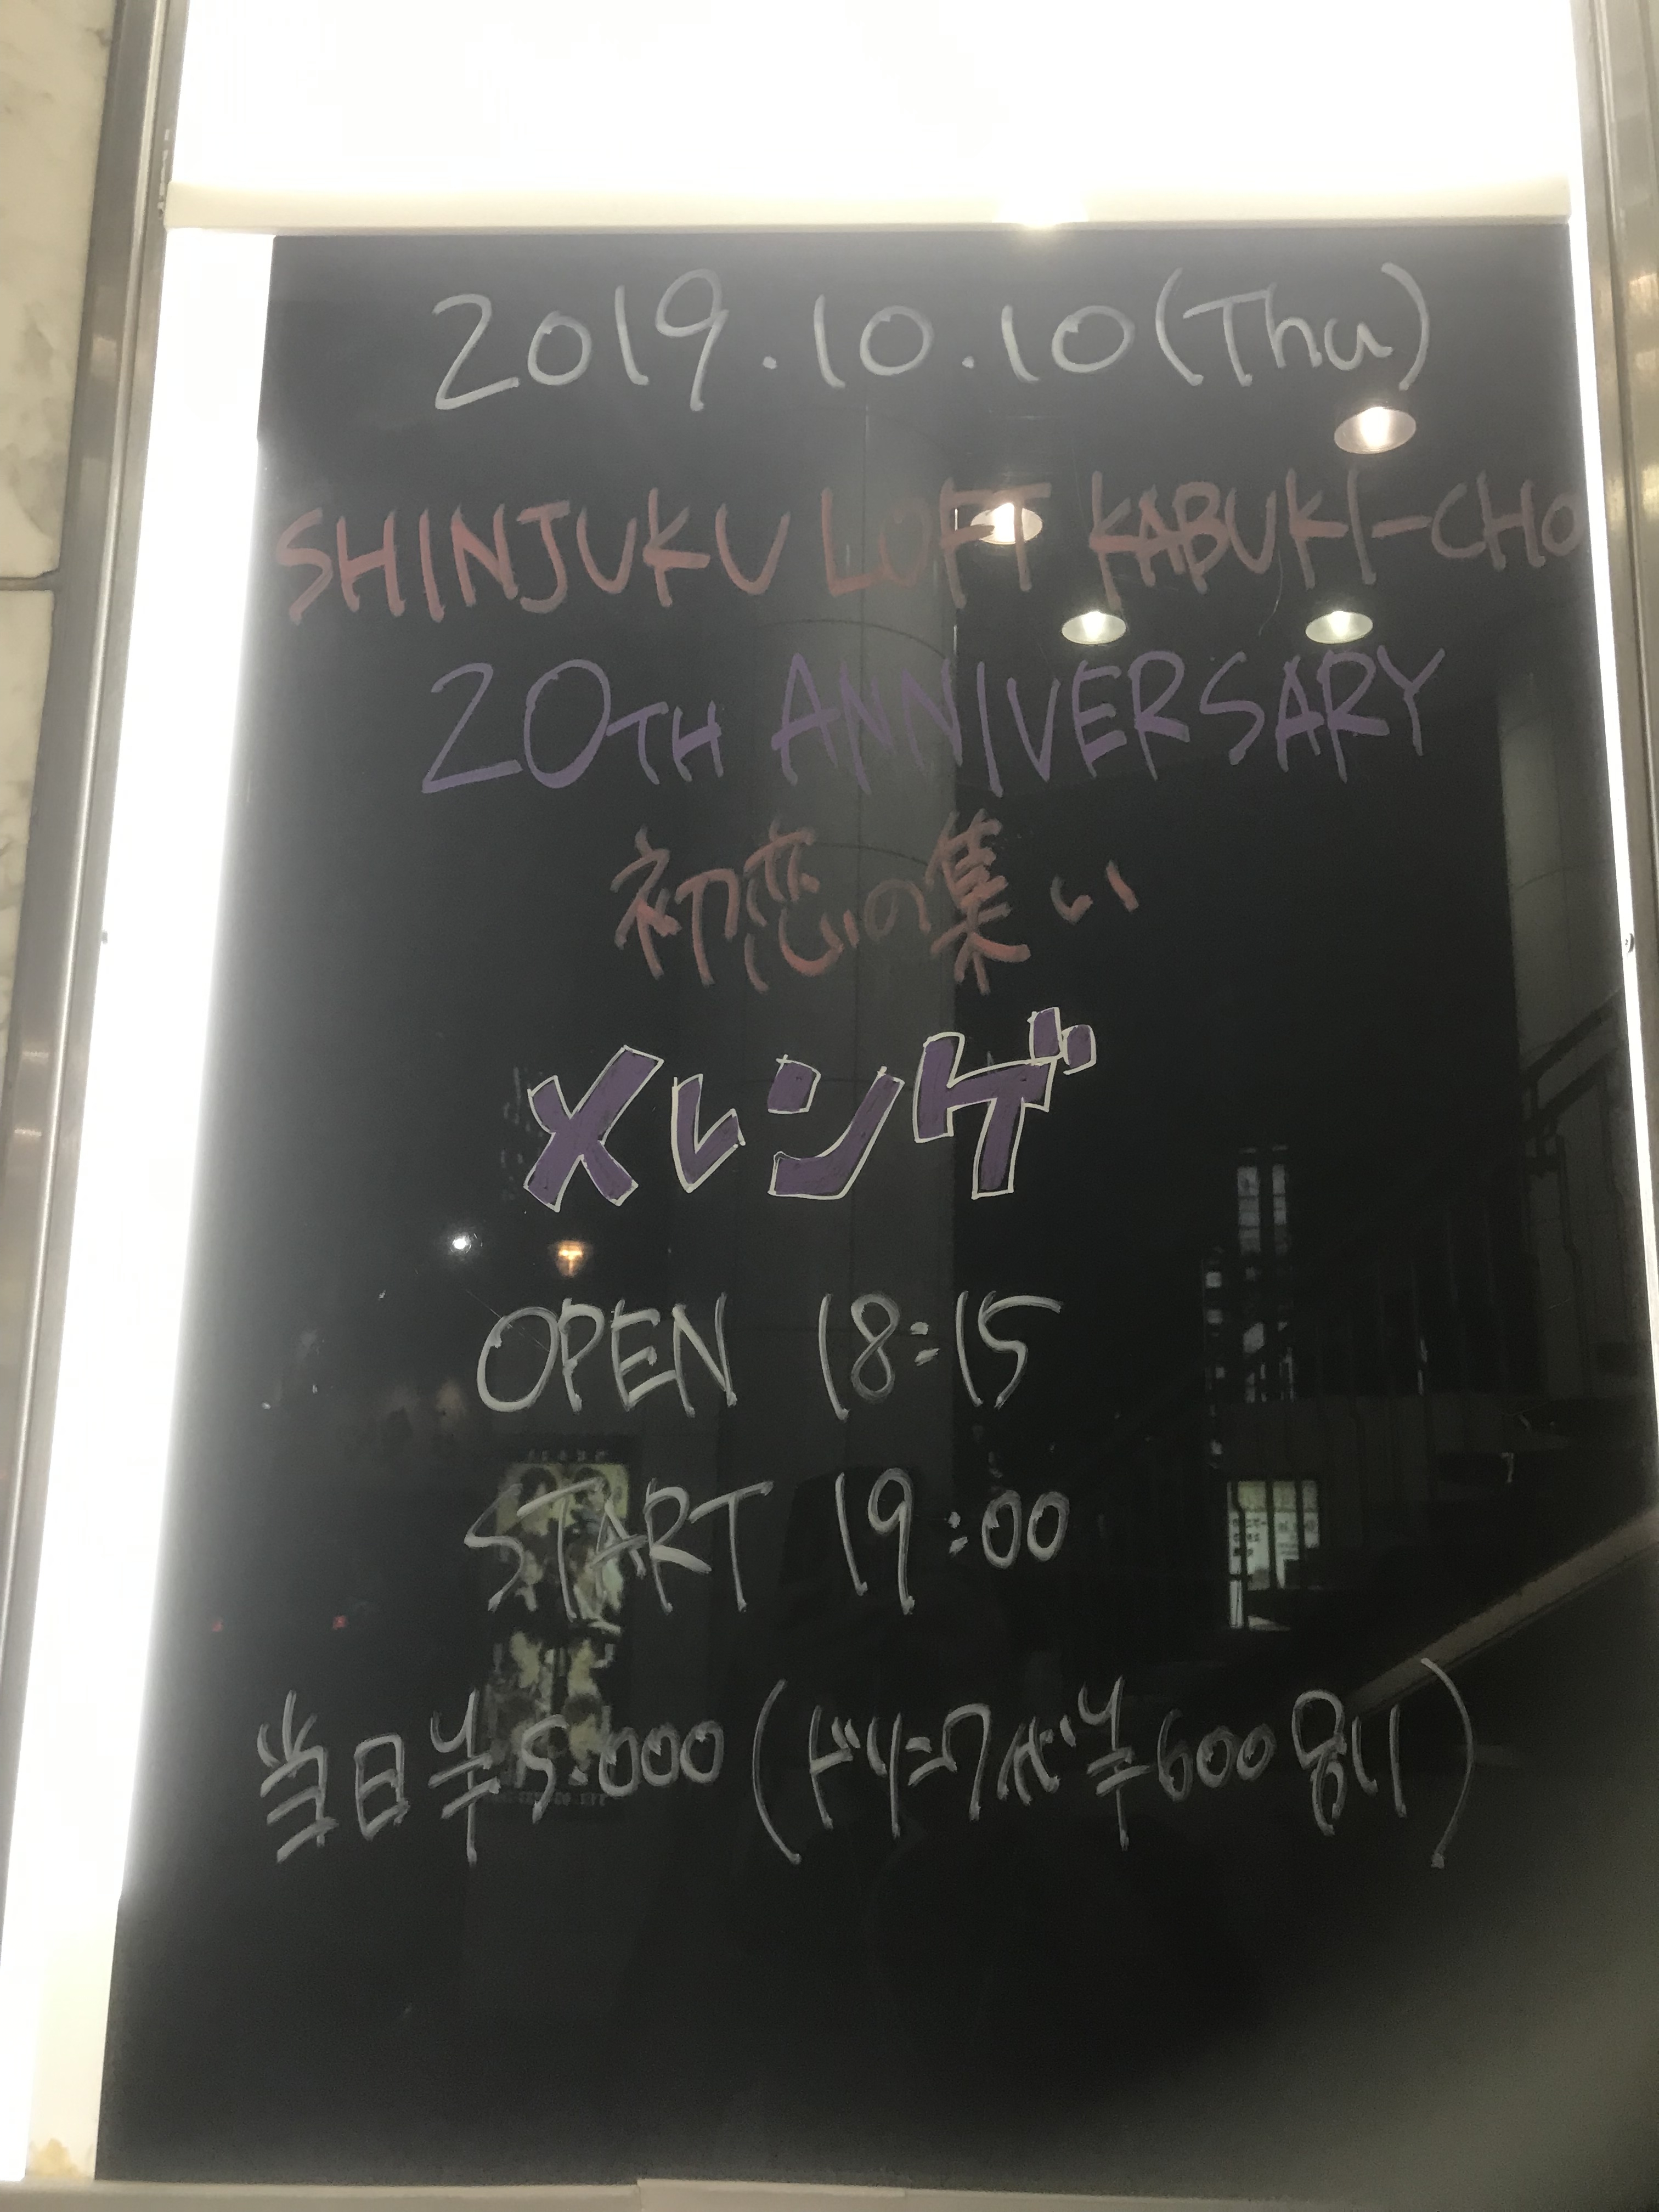 2019.10.10(Thu)
SHINJUKU LOFT KABUKI-CHO
20TH ANNIVERSARY
初恋の集い
メレンゲ
OPEN 18:15
START 19:00
当日¥5.000(ドリンク代¥600別)